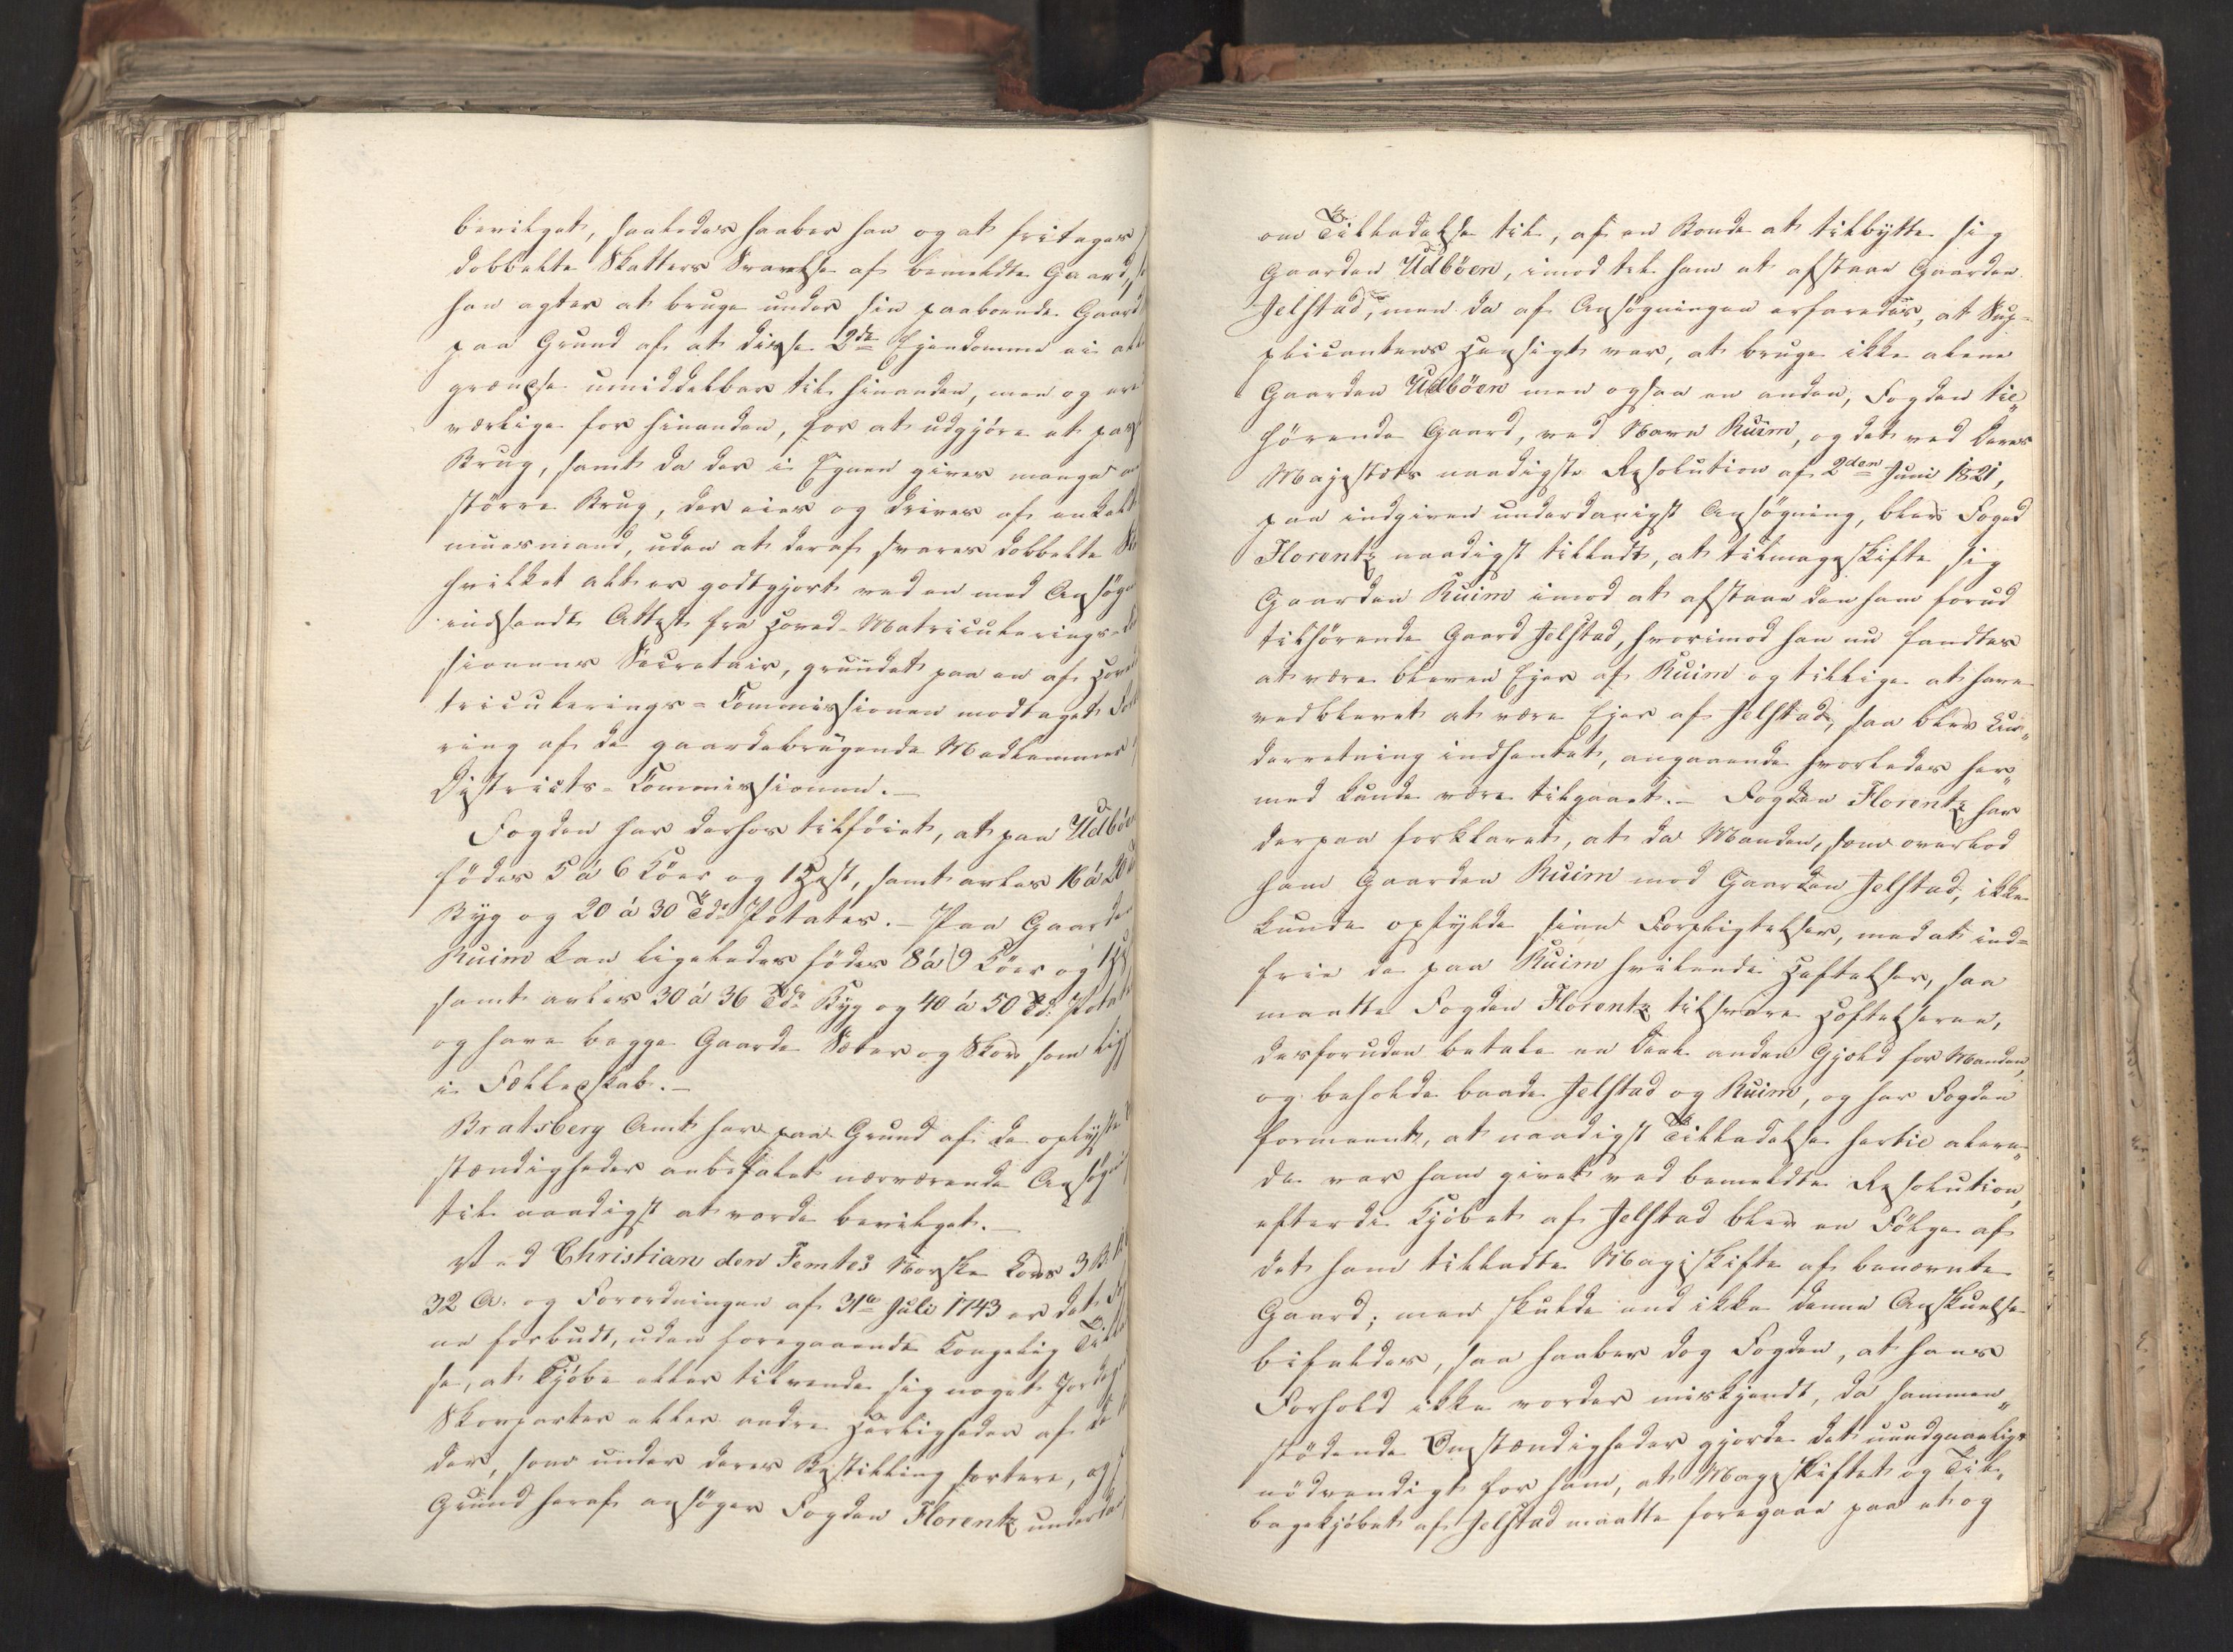 bevilget, saaledes haaber han og at fritages
dobbelte Skatters Svarelse af bemeldte Gaard,
han agter at bruge under sin paaboende Gaard
paa Grund af at disse 2de Ejendomme ei all
grændse umiddelbar til hinanden, men og ere
værlige for hinanden, for at udgjøre et pas
Brug, samt da der i Egnen gives mange
større Brug, der eies og drives af enkelt
muesmænd, uden at deraf svares dobbelte
hvilket alt er godtgjort ved en med Ansøgn
indsendt Attest fra Hoved-Matriculerings-
sionens Secretair, grundet paa en af Hoved
triculerings-Commissionen modtaget
ring af de gaardebrugende Medlemmer
Districts-Commissionen.—
Fogden har derhos tilføiet, at paa Udböen
fødes 5 á 6 Köer og 1 Hest, samt avles 16 á 20
Byg og 20 á 30 Tdr Potates.— Paa Gaarden
Ruim kan ligeledes fødes 8 á 9 Köer og 1
samt avles 30 á 36 Tdr Byg og 40 á 50 Td: Potates
og have begge Gaarde Sæter og Skov som lig
i Fællesskab.—
Bratsberg Amt har paa Grund af de oplyste
stændigheder anbefalet nærværende Ansøgn
til naadigst at vorde bevilget.—
Ved Christian den Femtes Norske Lovs 3 B.
32 A. og Forordningen af 31te Juli 1743 er det
ne forbudt, uden foregaaende Kongelig Tilla
se, at kjøbe eller tilvende sig noget Jordeg
Skovparter eller andre Herligheder af de
der, som under deres Bestilling sortere, og
Grund heraf ansøger Fogden Florentz underda
om Tilladelse til, af en Bonde at tilbytte sig
Gaarden Udböen, imod til ham at afstaae Gaarden
Jelstad, men da af Ansøgningen erfaredes, at Sup-
plicantens Hensigt var, at bruge ikke alene
Gaarden Udböen men ogsaa en anden, Fogden til„
hørende Gaard, ved Navn Ruim, og det ved Deres
Majestæts naadigste Resolution af 2den Juni 1821,
paa indgiven underdanigst Ansøgning, blev Foged
Florentz naadigst tilladt, at tilmageskifte sig
Gaarden Ruim imod at afstaae den ham forud
tilhørende Gaard Jelstad, hvorimod han nu fandtes
at være bleven Ejer af Ruim og tillige at have
vedblevet at være Ejer af Jelstad, saa blev Un„
derretning indhentet, angaaende hvorledes her„
med kunde være tilgaaet.— Fogden Florentz har
derpaa forklaret, at da Manden, som overlod
ham Gaarden Ruim mod Gaarden Jelstad, ikke
kunde opfylde sine Forpligtelser, med at ind-
frie de paa Ruim hvilende Heftelser, saa
maatte Fogden Florentz tilsvare Heftelserne,
desforuden betale en Deel anden Gjæld for Manden,
og beholde baade Jelstad og Ruim, og har Fogden
formeent, at naadigst Tilladelse hertil allere„
de var ham givet ved bemeldte Resolution,
efterdi Kjøbet af Jelstad blev en Følge af
det ham tilladte Mageskifte af benævnte
Gaard; men skulde end ikke denne Anskuelse
bifaldes, saa haaber dog Fogden, at hans
Forhold ikke vorder miskjendt, da sammen„
stødende Omstændigheder gjorde det uundgaaeligt
nødvendigt for ham, at Mageskiftet og Til„
bagekjøbet af Jelstad maatte foregaae paa et og